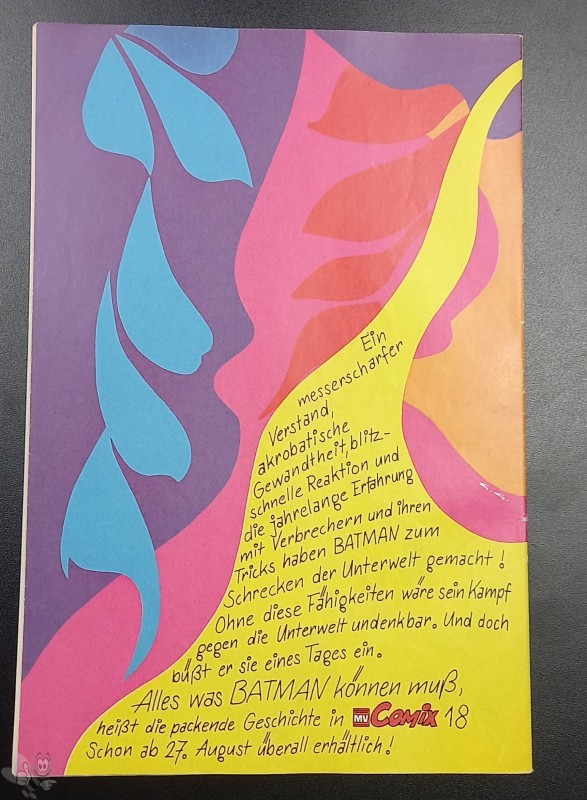 Ein
messerscharfer
Verstand,
akrobatische
Gewandtheit, blitz-
schnelle Reaktion und
die jahrelange Erfahrung
mit Verbrechern und ihren
Tricks haben BATMAN zum
Schrecken der Unterwelt gemacht!
Ohne diese Fähigkeiten wäre sein Kampf
gegen die Unterwelt undenkbar. Und doch
büßt er sie eines Tages ein.
Alles was BATMAN können muß,
heißt die packende Geschichte in MV Comix 18
Schon ab 27. August überall erhältlich!